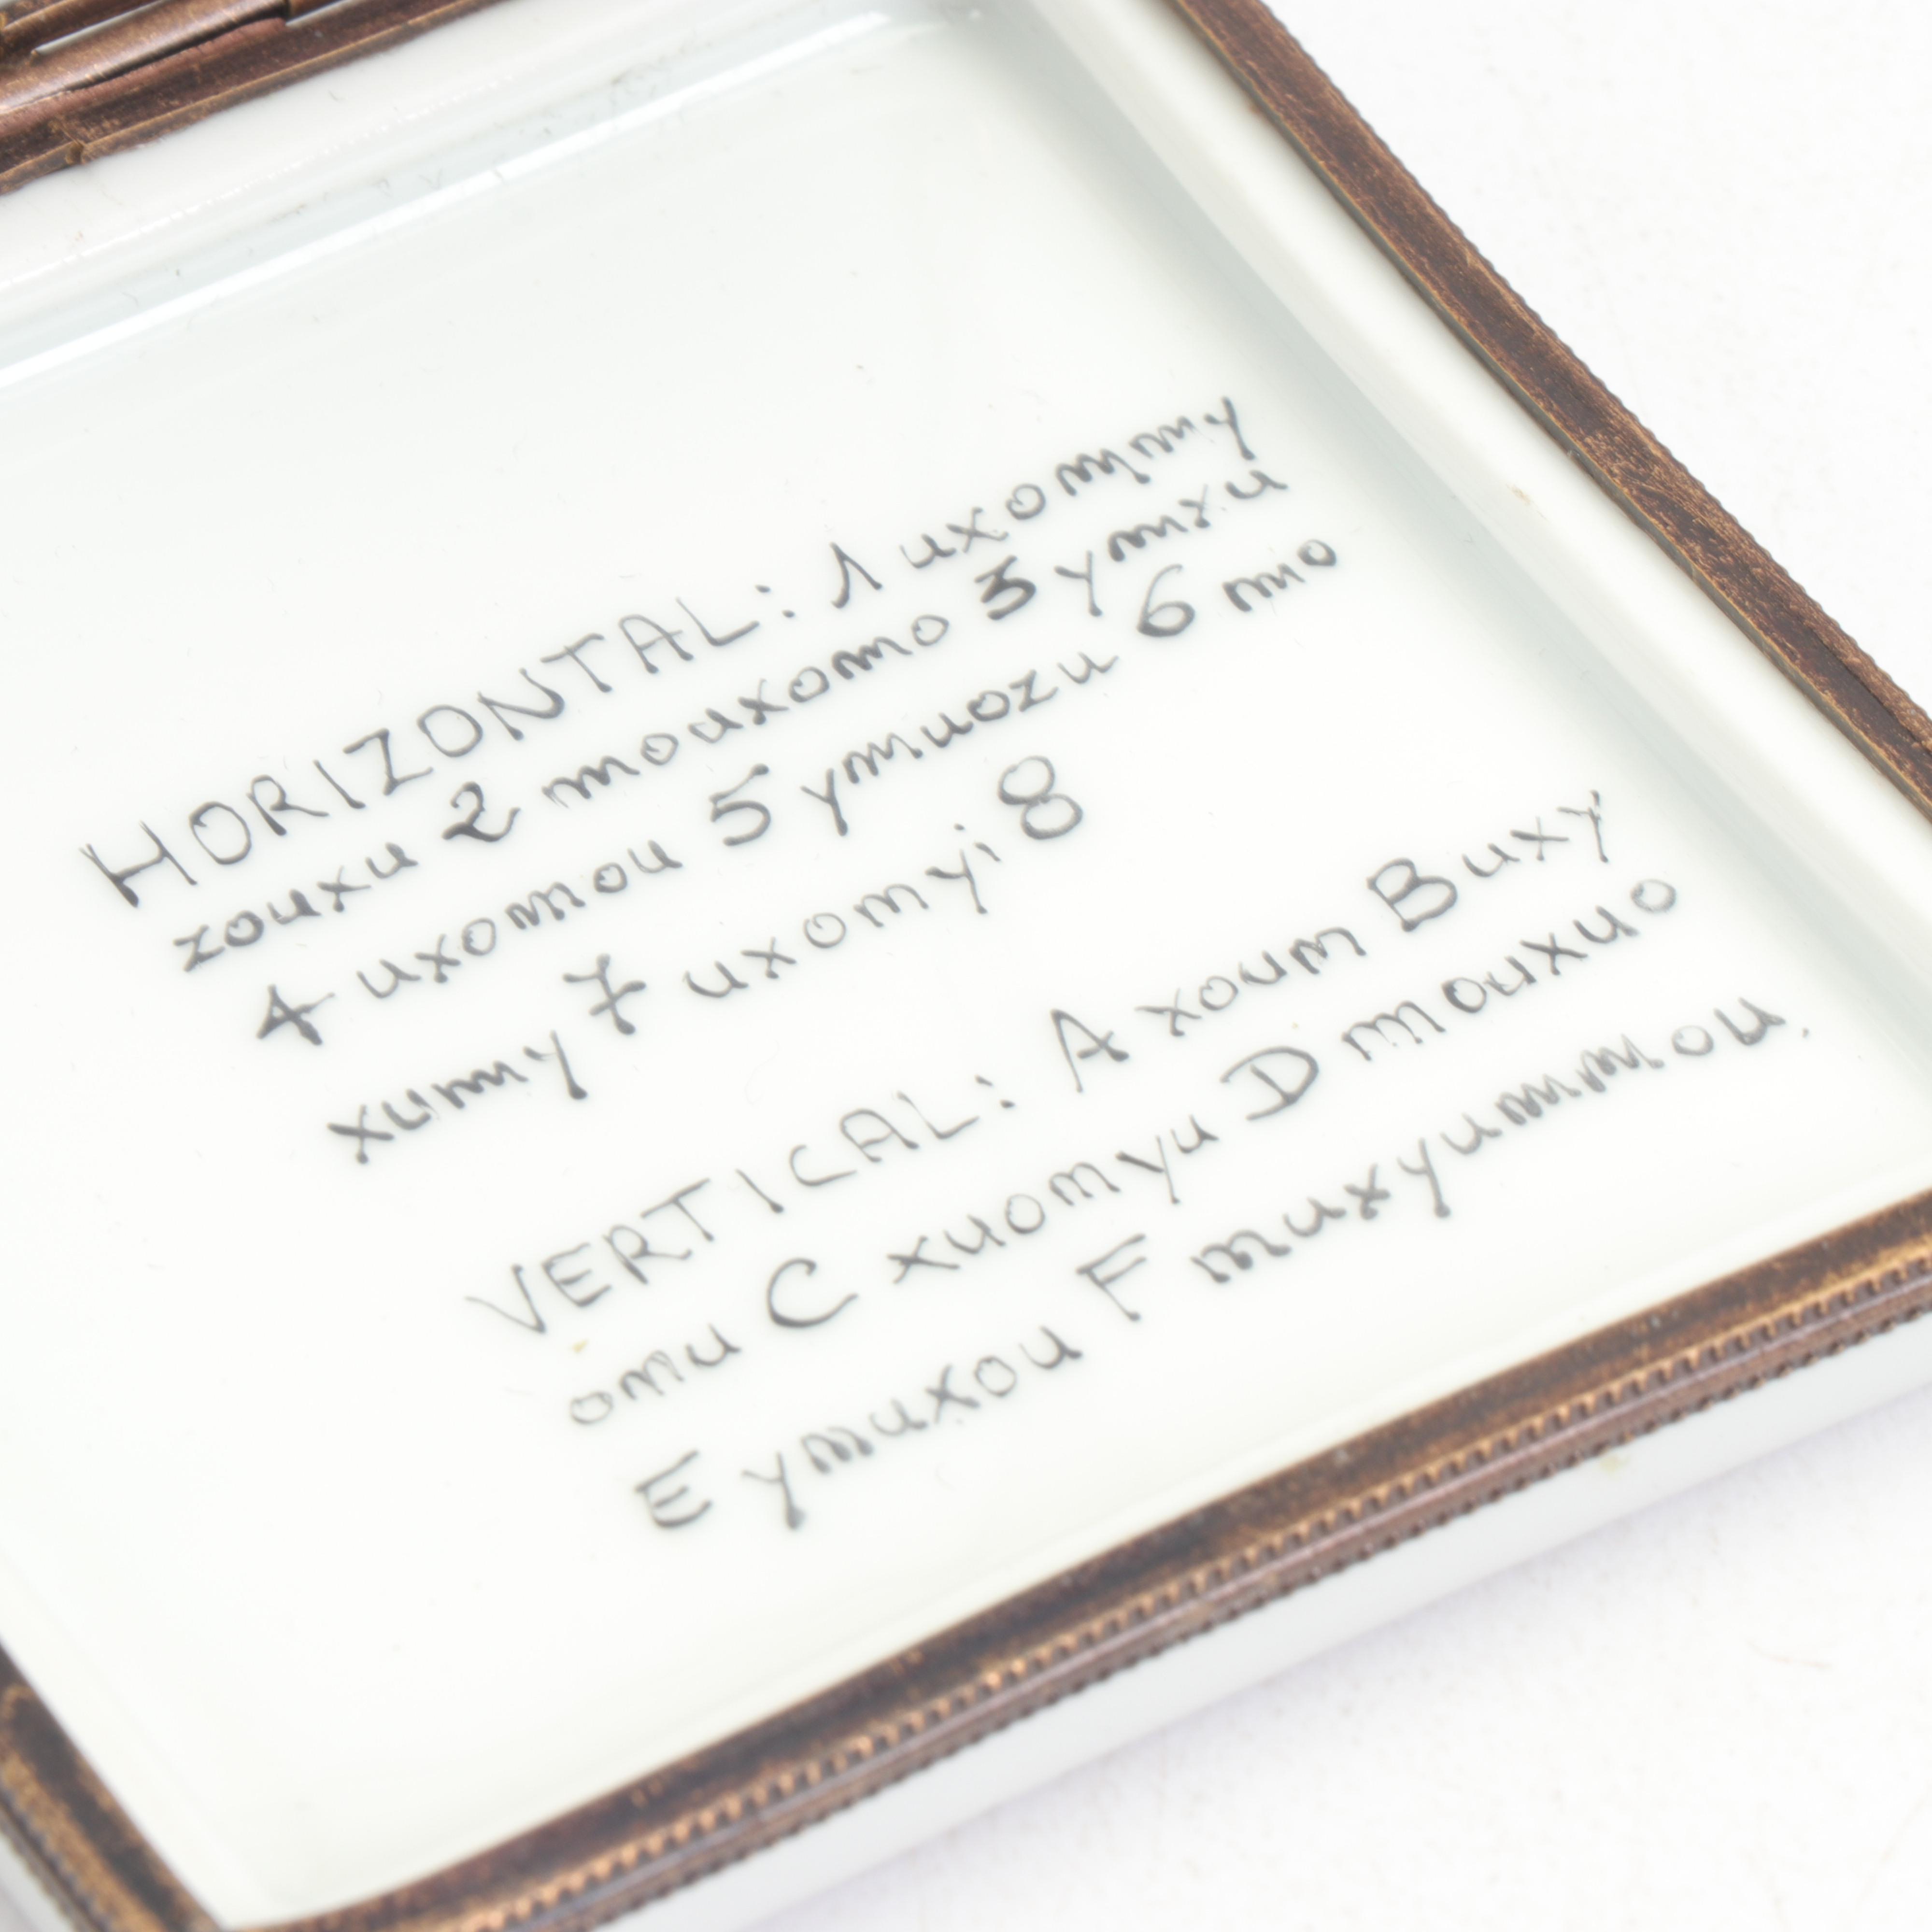 HORIZONTAL: 1 uxommy
zouxu 2 mouxomo 3 ymxu
4 uxomou 5 ymuozu 6 mio
xumy 7 uxomyi 8
VERTICAL: A xoum B uxy
omu C xuomyu D mouxuo
E ymuxou F muxyummou.